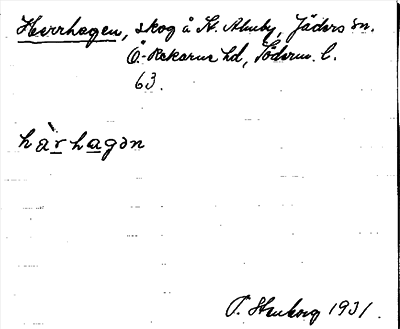 Herrhagen, skog å St. Almby, Jäders sn.
Ö.-Rekarne hd, Söderm. l.
63.
hàrhagən
1931.